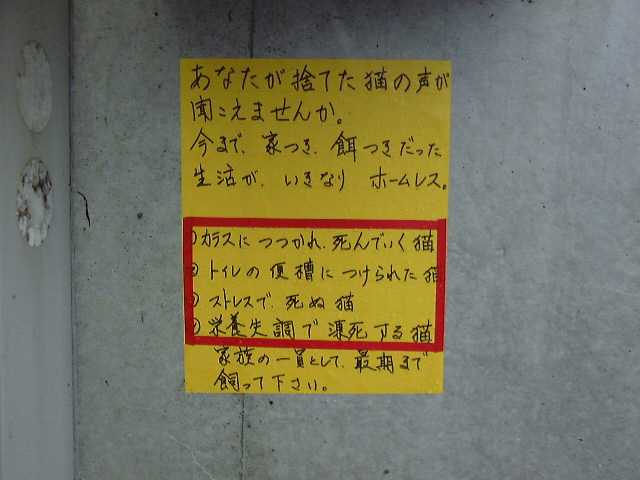 あなたが捨てた猫の声が
聞こえませんか。
今まで、家つき、餌つきだった
生活が、いきなり ホームレス。
①カラスに つつかれ、死んでいく猫
②トイレの便槽に つけられた猫
③ストレスで、死ぬ猫
④栄養失調で 凍死する猫
家族の一員として、最期まで
飼って下さい。